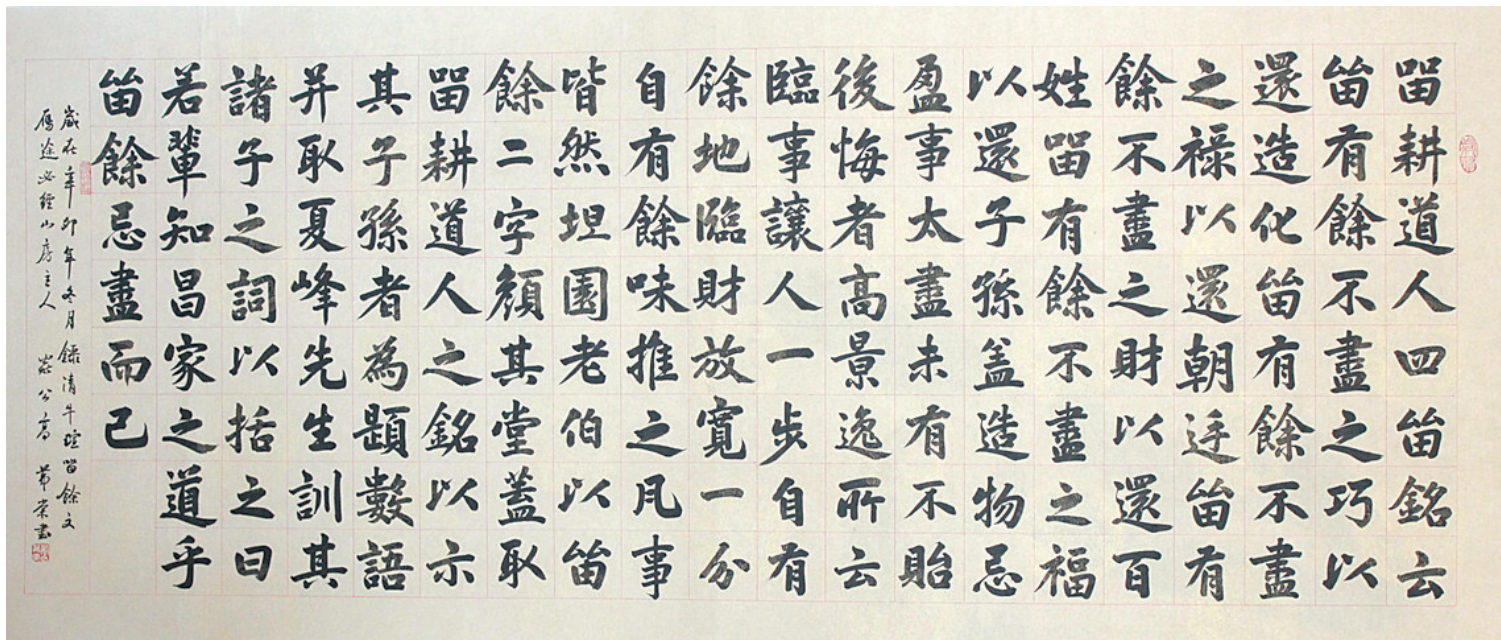 留耕道人四留銘云
留有餘不盡之巧以
還造化留有餘不盡
之祿以還朝廷留有
餘不盡之財以還百
姓留有餘不盡之福
以還子孫盖造物忌
盈事太盡未有不貽
後悔者高景逸所云
臨事讓人一步自有
餘地臨財放寬一分
自有餘味推之凡事
皆然坦園老伯以留
餘二字顏其堂蓋取
留耕道人之銘以示
其子孫者為題數語
并取夏峰先生訓其
諸子之詞以括之曰
若輩知昌家之道乎
留餘忌盡而已
歲在辛卯年冬月錄清牛瑄留餘文
雁途必經山房主人 公高 書